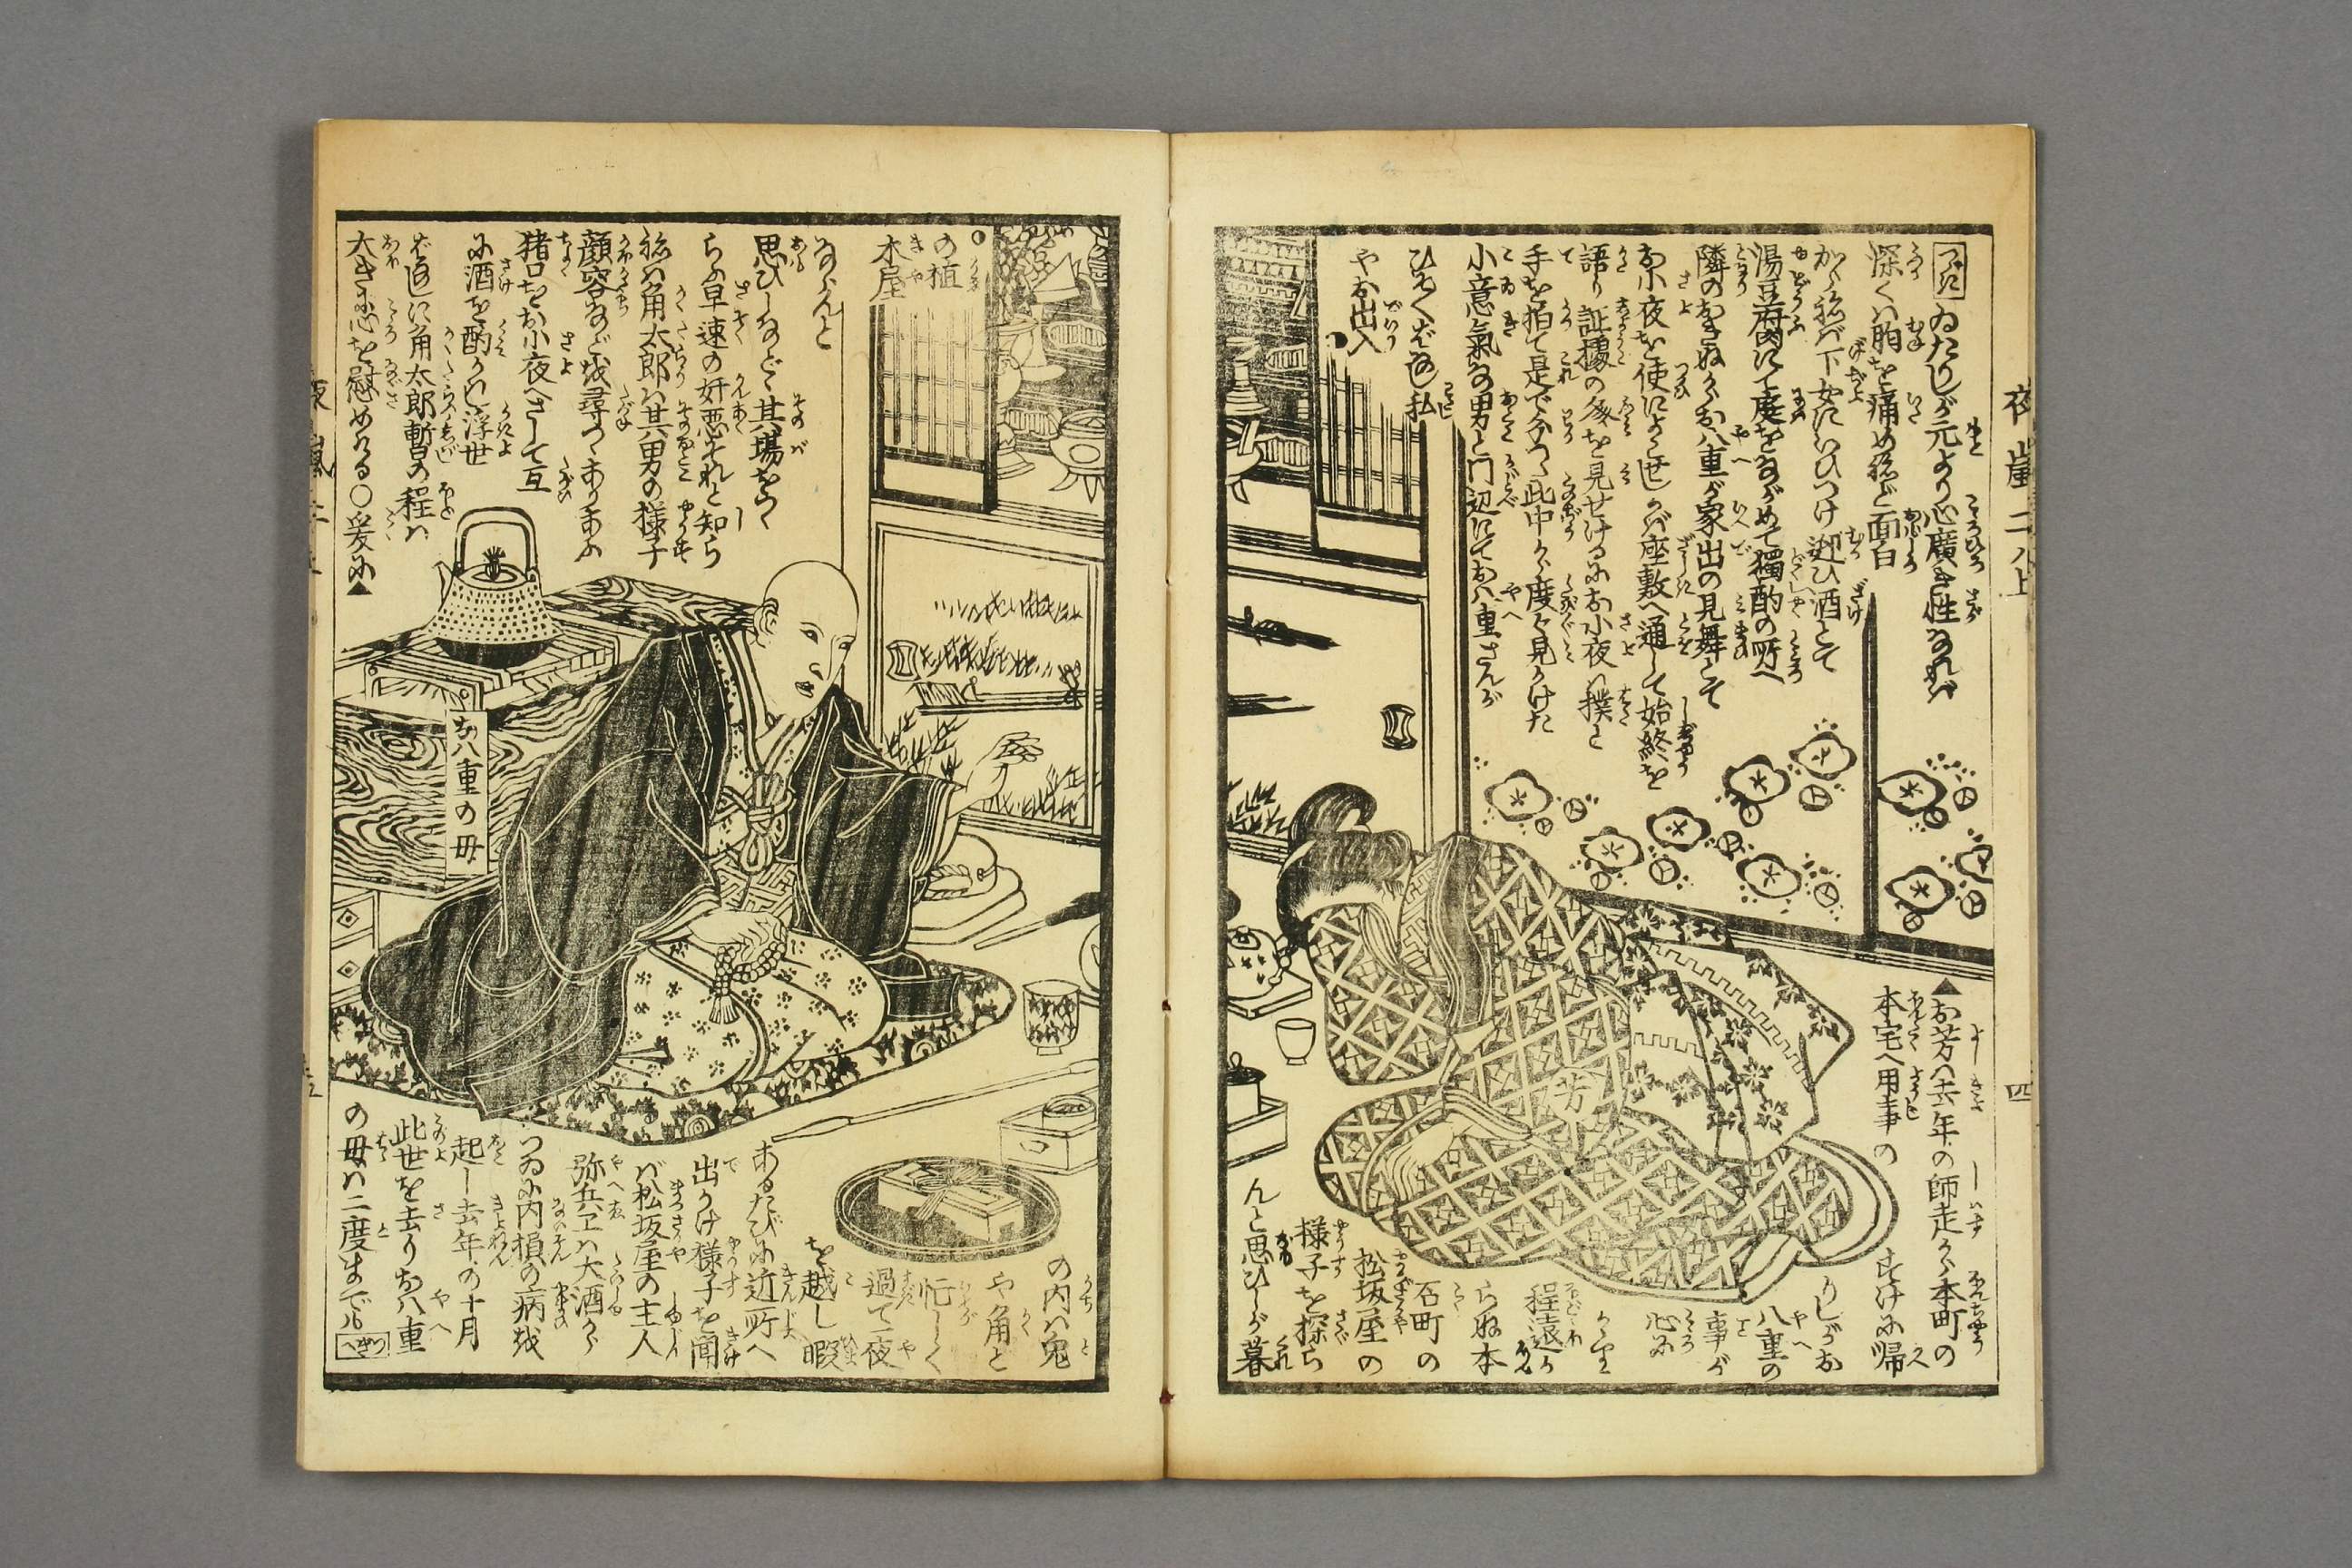 夜嵐二ノ上
四
つゞき
ゐたりしが元より心廣き性なれば
深くハ胸を痛め絵ど面白
からねば下女にいひつけ迎ひ酒とて
湯豆府肉にて庭をながめて獨酌の所へ
隣のおきぬからお八重が家出の見舞とて
お小夜を使によこせしかバ座敷へ通して始終を
語り証據の家を見せけるにお小夜ハ撲と
手を拍て是で分つた此中から度々見かけた
小意氣な男と門辺にてお八重さんが
ひそ〱ばなし私
やお出入
の植
木屋
ならんと
思ひしなど其場をつく
ろふ早速の奸悪それと知ら
ねバ角太郎ハ其男の様子
顔容などを尋つゝありあふ
猪口をお小夜へさして互
に酒を酌かハし浮世
ばなしに角太郎暫の程ハ
大きに心を慰めける○爰に▲
お八重の母
芳
▲お芳ハ去年の師走から本町の
本宅へ用事の
すけに帰
りしがお
八重の
事が
心に
かゝれ
程遠か
らぬ本
石町の
松坂屋の
様子を探ら
んと思ひしが暮
の内ハ兎
や角と
忙しく
過て一夜
を越し暇
あるたびに近所へ
出かけ様子を聞
バ松坂屋の主人
弥兵ヱハ大酒から
つゐに内損の病を
起し去年の十月
此世を去りお八重
の母ハ二度までも
つぎへ